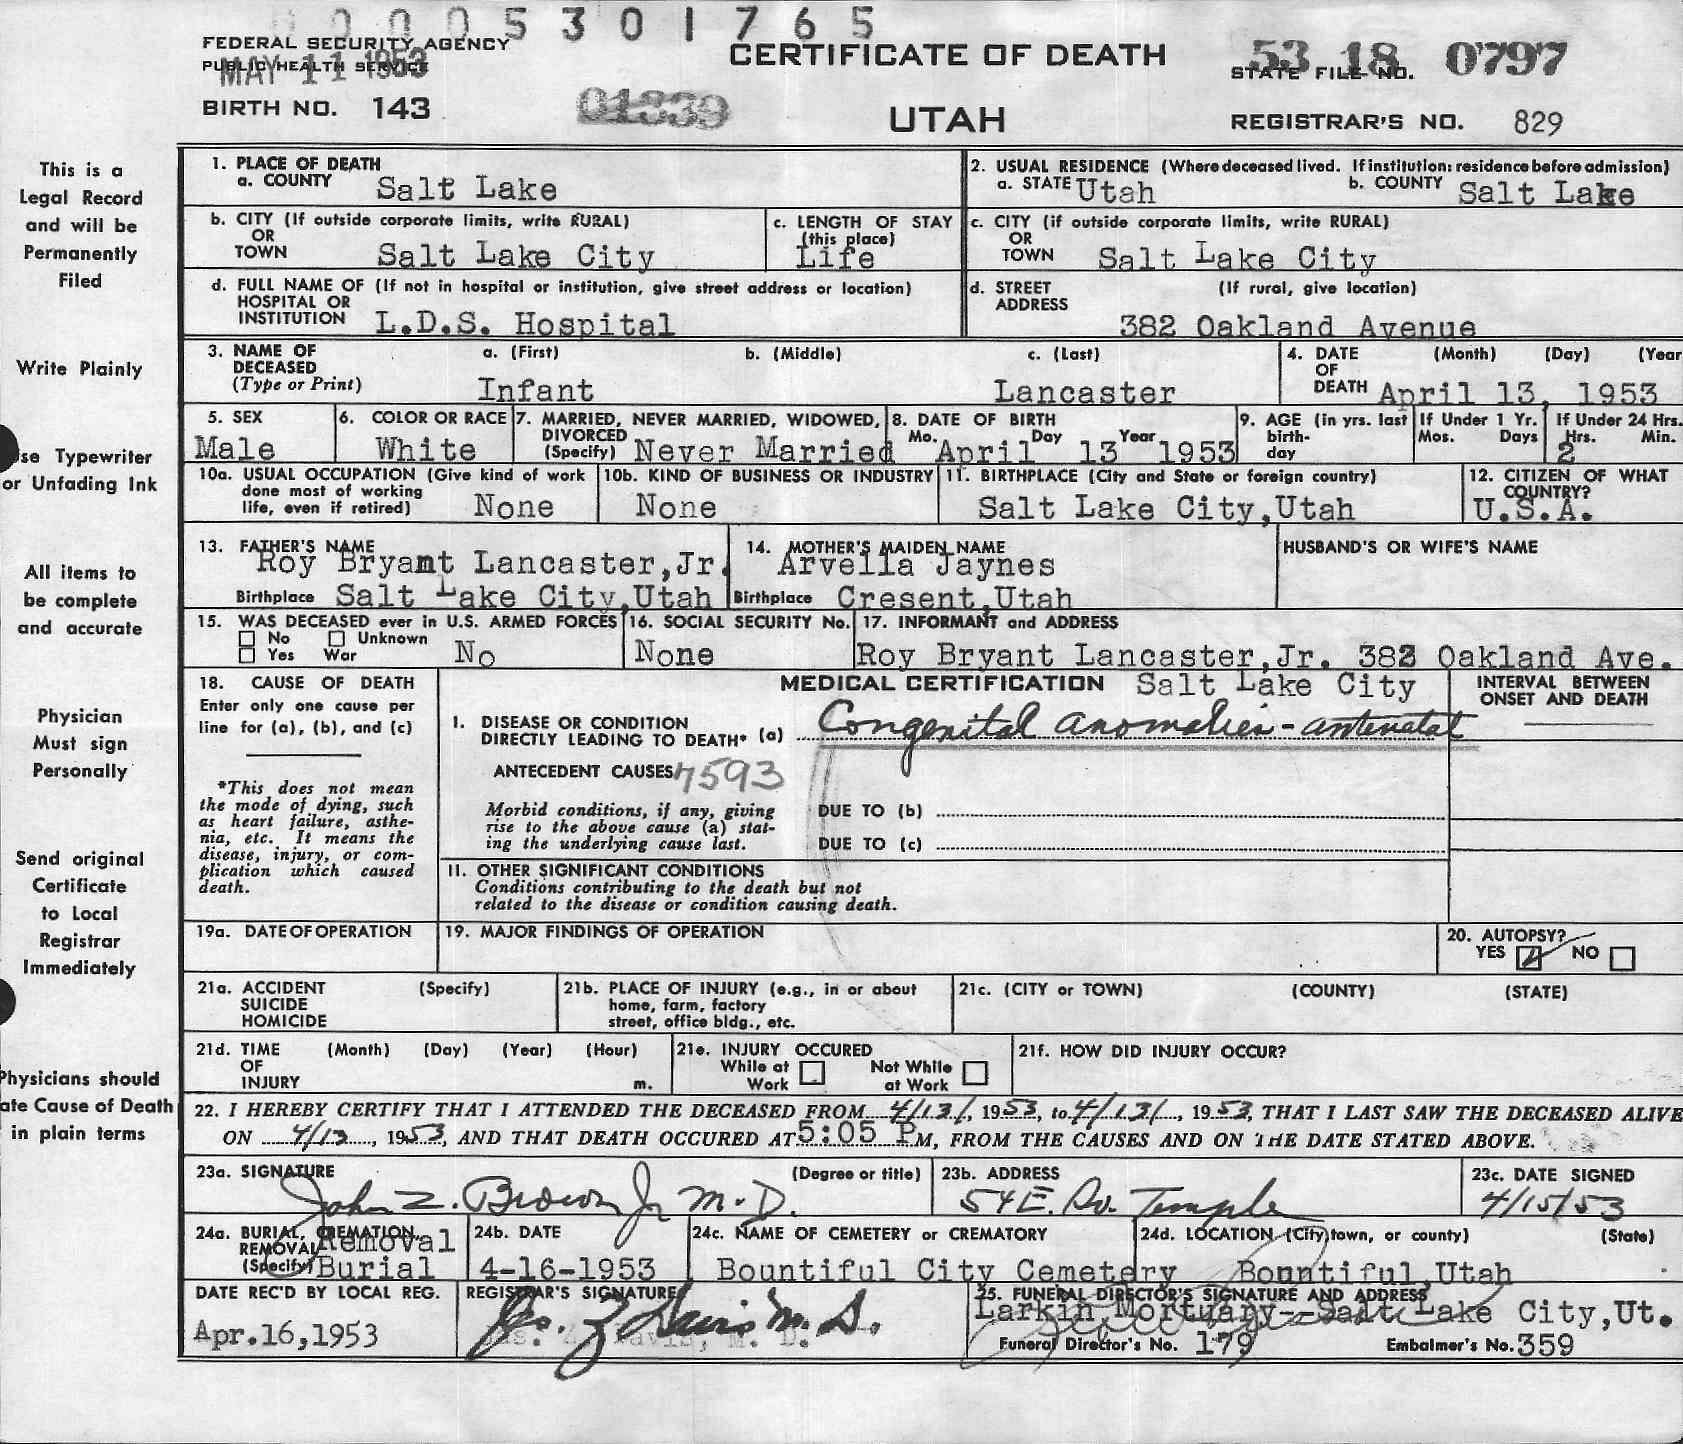 0005301765
FEDERAL SECURITY AGENCY
PUBLIC HEALTH SERVICE
MAY 11 1953
CERTIFICATE OF DEATH
53 18 0797
STATE FILE NO.
BIRTH NO. 143
01339
UTAH
REGISTRAR'S NO. 829
This is a
Legal Record
and will be
Permanently
Filed
Write Plainly
se Typewriter
or Unfading Ink
All items to
be complete
and accurate
Physician
Must sign
Personally
Send original
Certificate
to Local
Registrar
Immediately
Physicians should
ate Cause of Death
in plain terms
1. PLACE OF DEATH
a. COUNTY Salt Lake
2. USUAL RESIDENCE (Where deceased lived. If institution: residence before admission)
a. STATE Utah b. COUNTY Salt Lake
b. CITY (If outside corporate limits, write RURAL)
OR
TOWN Salt Lake City
c. LENGTH OF STAY
(this place)
Life
c. CITY (if outside corporate limits, write RURAL)
OR
TOWN Salt Lake City
d. FULL NAME OF (If not in hospital or institution, give street address or location)
HOSPITAL OR
INSTITUTION L.D.S. Hospital
d. STREET (If rural, give location)
ADDRESS
382 Oakland Avenue
3. NAME OF a. (First) b. (Middle) c. (Last)
DECEASED
(Type or Print) Infant Lancaster
4. DATE (Month) (Day) (Year
OF
DEATH April 13, 1953
5. SEX
Male
6. COLOR OR RACE
White
7. MARRIED, NEVER MARRIED, WIDOWED,
DIVORCED
(Specify) Never Married
8. DATE OF BIRTH
Mo. Day Year
April 13 1953
9. AGE (in yrs. last
birth-
day
If Under 1 Yr.
Mos. Days
If Under 24 Hrs.
Hrs. Min.
2
10a. USUAL OCCUPATION (Give kind of work
done most of working
life, even if retired) None
10b. KIND OF BUSINESS OR INDUSTRY
None
11. BIRTHPLACE (City and State or foreign country)
Salt Lake City,Utah
12. CITIZEN OF WHAT
COUNTRY?
U.S.A.
13. FATHER'S NAME
Roy Bryant Lancaster,Jr.
Birthplace Salt Lake City,Utah
14. MOTHER'S MAIDEN NAME
Arvella Jaynes
Birthplace Cresent,Utah
HUSBAND'S OR WIFE'S NAME
15. WAS DECEASED ever in U.S. ARMED FORCES
No Unknown
Yes War No
16. SOCIAL SECURITY No.
None
17. INFORMANT and ADDRESS
Roy Bryant Lancaster,Jr. 382 Oakland Ave.
Salt Lake City
18. CAUSE OF DEATH
Enter only one cause per
line for (a), (b), and (c)
*This does not mean
the mode of dying, such
as heart failure, asthe-
nia, etc. It means the
disease, injury, or com-
plication which caused
death.
MEDICAL CERTIFICATION
INTERVAL BETWEEN
ONSET AND DEATH
I. DISEASE OR CONDITION
DIRECTLY LEADING TO DEATH* (a) Congenital anomalies - antenatal
ANTECEDENT CAUSES 7593
Morbid conditions, if any, giving
rise to the above cause (a) stat-
ing the underlying cause last.
DUE TO (b)
DUE TO (c)
11. OTHER SIGNIFICANT CONDITIONS
Conditions contributing to the death but not
related to the disease or condition causing death.
19a. DATE OF OPERATION
19. MAJOR FINDINGS OF OPERATION
20. AUTOPSY?
YES NO
21a. ACCIDENT (Specify)
SUICIDE
HOMICIDE
21b. PLACE OF INJURY (e.g., in or about
home, farm, factory
street, office bldg., etc.
21c. (CITY or TOWN) (COUNTY) (STATE)
21d. TIME (Month) (Day) (Year) (Hour)
OF
INJURY m.
21e. INJURY OCCURED
While at Not While
Work at Work
21f. HOW DID INJURY OCCUR?
22. I HEREBY CERTIFY THAT I ATTENDED THE DECEASED FROM 4/13/, 1953, to 4/13/, 1953, THAT I LAST SAW THE DECEASED ALIVE
ON 4/13, 1953, AND THAT DEATH OCCURED AT 5:05 PM, FROM THE CAUSES AND ON THE DATE STATED ABOVE.
23a. SIGNATURE (Degree or title)
John Z. Brown Jr M.D.
23b. ADDRESS
54 E. So. Temple
23c. DATE SIGNED
4/15/53
24a. BURIAL, CREMATION,
REMOVAL Removal
(Specify) Burial
24b. DATE
4-16-1953
24c. NAME OF CEMETERY or CREMATORY
Bountiful City Cemetery
24d. LOCATION (City, town, or county) (State)
Bountiful,Utah
DATE REC'D BY LOCAL REG.
Apr.16,1953
REGISTRAR'S SIGNATURE
25. FUNERAL DIRECTOR'S SIGNATURE AND ADDRESS
Larkin Mortuary--Salt Lake City,Ut.
Funeral Director's No. 179 Embalmer's No. 359